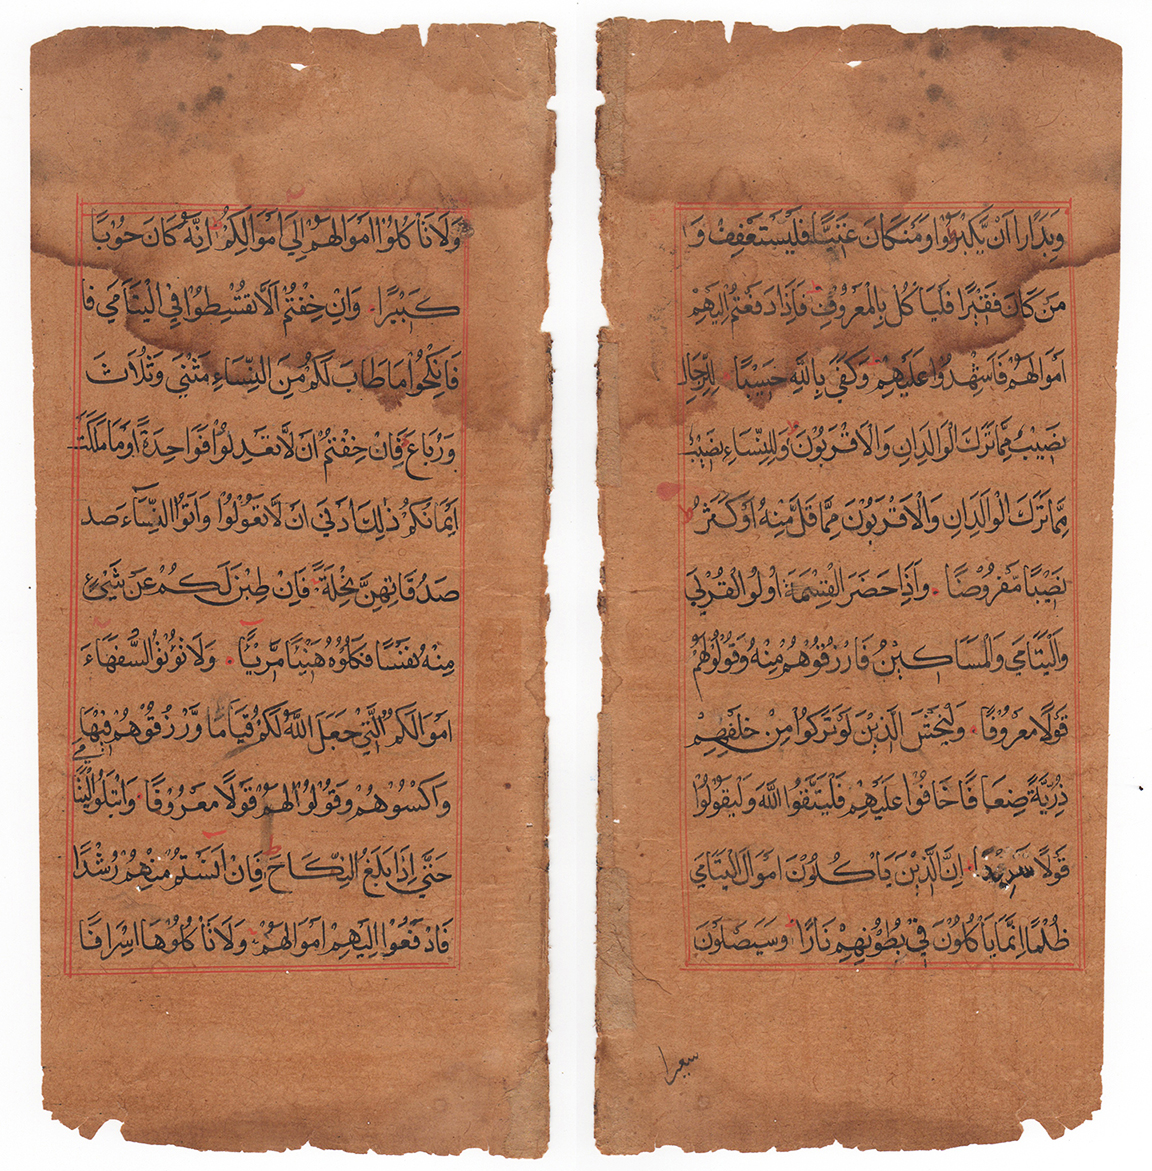 وَلَا تَأْكُلُوْا اَمْوَالَهُمْ اِلٰى اَمْوَالِكُمْ اِنَّهٗ كَانَ حُوْبًا
كَبِيْرًا وَاِنْ خِفْتُمْ اَلَّا تُقْسِطُوْا فِي الْيَتَامٰي فَا
فَانْكِحُوْا مَا طَابَ لَكُمْ مِنَ النِّسَاءِ مَثْنٰي وَثُلَاثَ
وَرُبَاعَ فَاِنْ خِفْتُمْ اَنْ لَّا تَعْدِلُوْا فَوَاحِدَةً اَوْ مَا مَلَكَتْ
اَيْمَانُكُمْ ذٰلِكَ اَدْنٰي اَنْ لَّا تَعُوْلُوْا وَآتُوا النِّسَآءَ صَد
صَدُقَاتِهِنَّ نِحْلَةً فَاِنْ طِبْنَ لَكُمْ عَنْ شَيْئٍ
مِنْهُ نَفْسًا فَكُلُوْهُ هَنِيْئًا مَّرِيْئًا وَلَا تُؤْتُوا السُّفَهَاءَ
اَمْوَالَكُمُ الَّتِيْ جَعَلَ اللّٰهُ لَكُمْ قِيَامًا وَّرْزُقُوْهُمْ فِيْهَا
وَاكْسُوْهُمْ وَقُوْلُوْا لَهُمْ قَوْلًا مَعْرُوْفًا وَابْتَلُوا الْيَتَا مي
حَتّٰي اِذَا بَلَغُ النِّكَاحَ فَاِنْ آنَسْتُمْ مِنْهُمْ رُشْدًا
فَادْفَعُوْا اِلَيْهِمْ اَمْوَالَهُمْ وَلَا تَأْكُلُوْهَا اِسْرَافًا
وَبِدَارًا اَنْ يَّكْبَرُوْا وَمَنْ كَانَ غَنِيًّا فَلْيَسْتَعْفِفْ وَ
مَنْ كَانَ فَقِيْرًا فَلْيَأْكُلْ بِالْمَعْرُوْفِ فَاِذَا دَفَعْتُمْ اِلَيْهِمْ
اَمْوَالَهُمْ فَاَشْهِدُوْا عَلَيْهِمْ وَكَفٰي بِاللّٰهِ حَسِيْبًا لِلرِّجَالِ
نَصِيْبٌ مِّمَّا تَرَكَ الْوَالِدَانِ وَالْاَقْرَبُوْنَ وَلِلنِّسَاءِ نَصِيْبٌ
مِّمَّا تَرَكَ الْوَالِدَانِ وَالْاَقْرَبُوْنَ مِمَّا قَلَّ مِنْهُ اَوْ كَثُرَ
نَصِيْبًا مَّفْرُوْضًا وَاِذَا حَضَرَ الْقِسْمَةَ اُولُوا الْقُرْبٰي
وَالْيَتَامٰي وَالْمَسَاكِيْنُ فَارْزُقُوْهُمْ مِنْهُ وَقُوْلُوْا لَهُمْ
قَوْلًا مَعْرُوْفًا وَلْيَخْشَ الَّذِيْنَ لَوْ تَرَكُوْا مِنْ خَلْفِهِمْ
ذُرِّيَّةً ضِعَافًا خَافُوْا عَلَيْهِمْ فَلْيَتَّقُوا اللّٰهَ وَلْيَقُوْلُوْا
قَوْلًا سَدِيْدًا اِنَّ الَّذِيْنَ يَاْكُلُوْنَ اَمْوَالَ الْيَتَامٰي
ظُلْمًا اِنَّمَا يَاْكُلُوْنَ فِيْ بُطُوْنِهِمْ نَارًا وَسَيَصْلَوْنَ
سعيرا